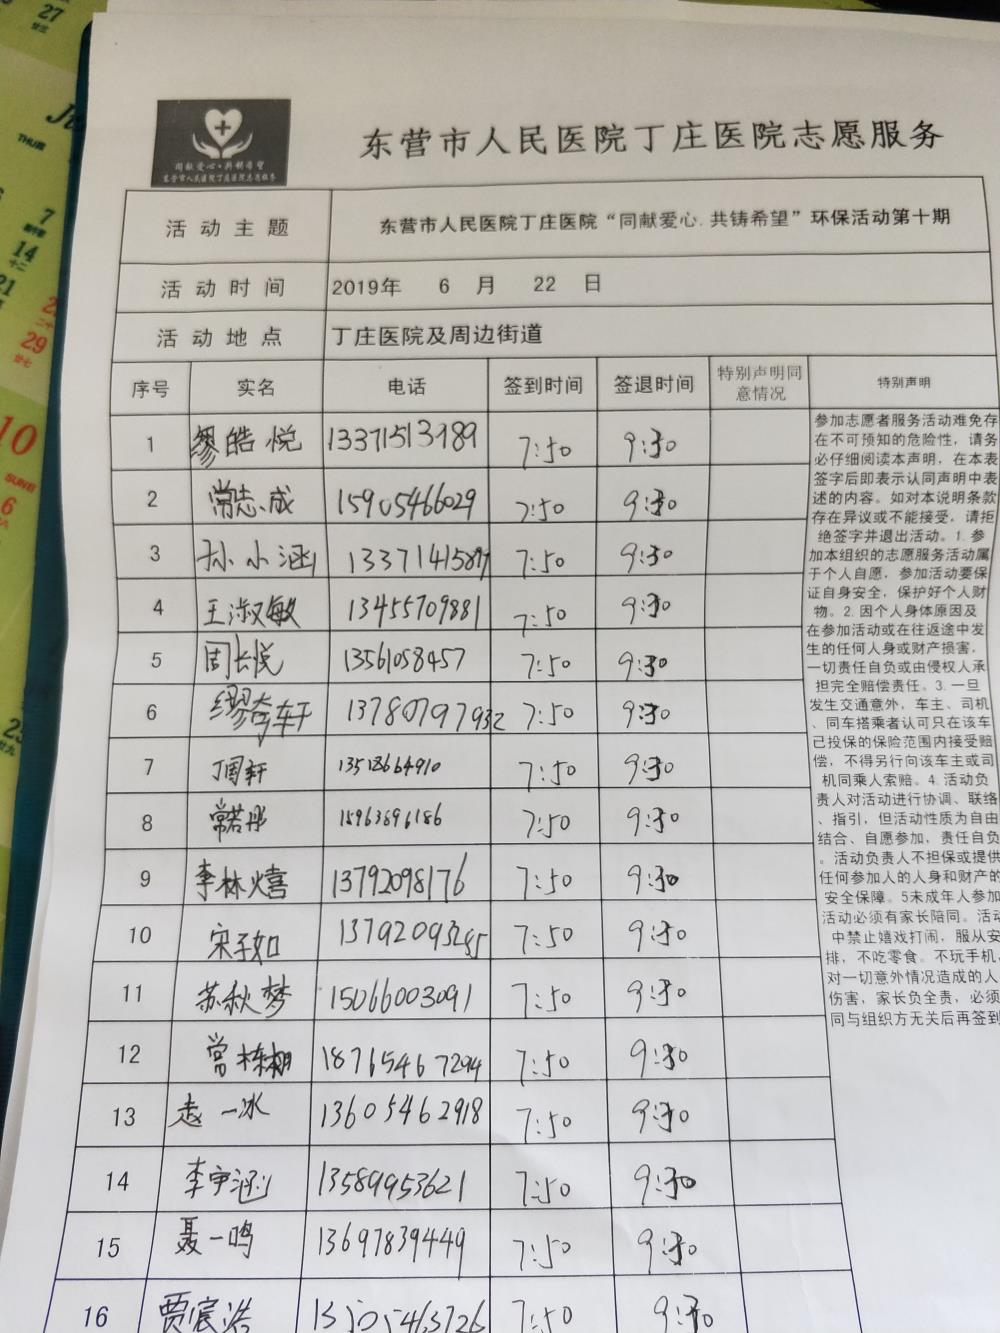 同献爱心·共铸希望
东营市人民医院丁庄医院志愿服务
东营市人民医院丁庄医院志愿服务
活动主题 东营市人民医院丁庄医院“同献爱心.共铸希望”环保活动第十期
活动时间 2019年 6 月 22 日
活动地点 丁庄医院及周边街道
序号 实名 电话 签到时间 签退时间 特别声明同意情况 特别声明
1 缪皓悦 13371513989 7:50 9:30
2 常志成 15905466029 7:50 9:30
3 孙小涵 7:50 9:30
4 王淑敏 13455709881 7:50 9:30
5 周长悦 13561058457 7:50 9:30
6 缪奇轩 13780797932 7:50 9:30
7 13518664910 7:50 9:30
8 常若彤 15963896186 7:50 9:30
9 李林熹 13792098176 7:50 9:30
10 宋子如 7:50 9:30
11 苏秋梦 15066003091 7:50 9:30
12 18765467294 7:50 9:30
13 赵一冰 13605462918 7:50 9:30
14 李宇涵 13589953621 7:50 9:30
15 聂一鸣 13697839449 7:50 9:30
16 贾宸浩 7:50 9:30
参加志愿者服务活动难免存
在不可预知的危险性，请务
必仔细阅读本声明，在本表
签字后即表示认同声明中表
述的内容。如对本说明条款
存在异议或不能接受，请拒
绝签字并退出活动。1.参
加本组织的志愿服务活动属
于个人自愿，参加活动要保
证自身安全，保护好个人财
物。2.因个人身体原因及
在参加活动或在往返途中发
生的任何人身或财产损害，
一切责任自负或由侵权人承
担完全赔偿责任。3.一旦
发生交通意外，车主、司机
、同车搭乘者认可只在该车
已投保的保险范围内接受赔
偿，不得另行向该车主或司
机同乘人索赔。4.活动负
责人对活动进行协调、联络
、指引，但活动性质为自由
结合、自愿参加，责任自负
。活动负责人不担保或提供
任何参加人的人身和财产的
安全保障。5未成年人参加
活动必须有家长陪同。活动
中禁止嬉戏打闹，服从安
排，不吃零食。不玩手机，
对一切意外情况造成的人
伤害，家长负全责，必须
同与组织方无关后再签到
27
THUR
7
14
十二
21
29
廿七
10
SUN
6